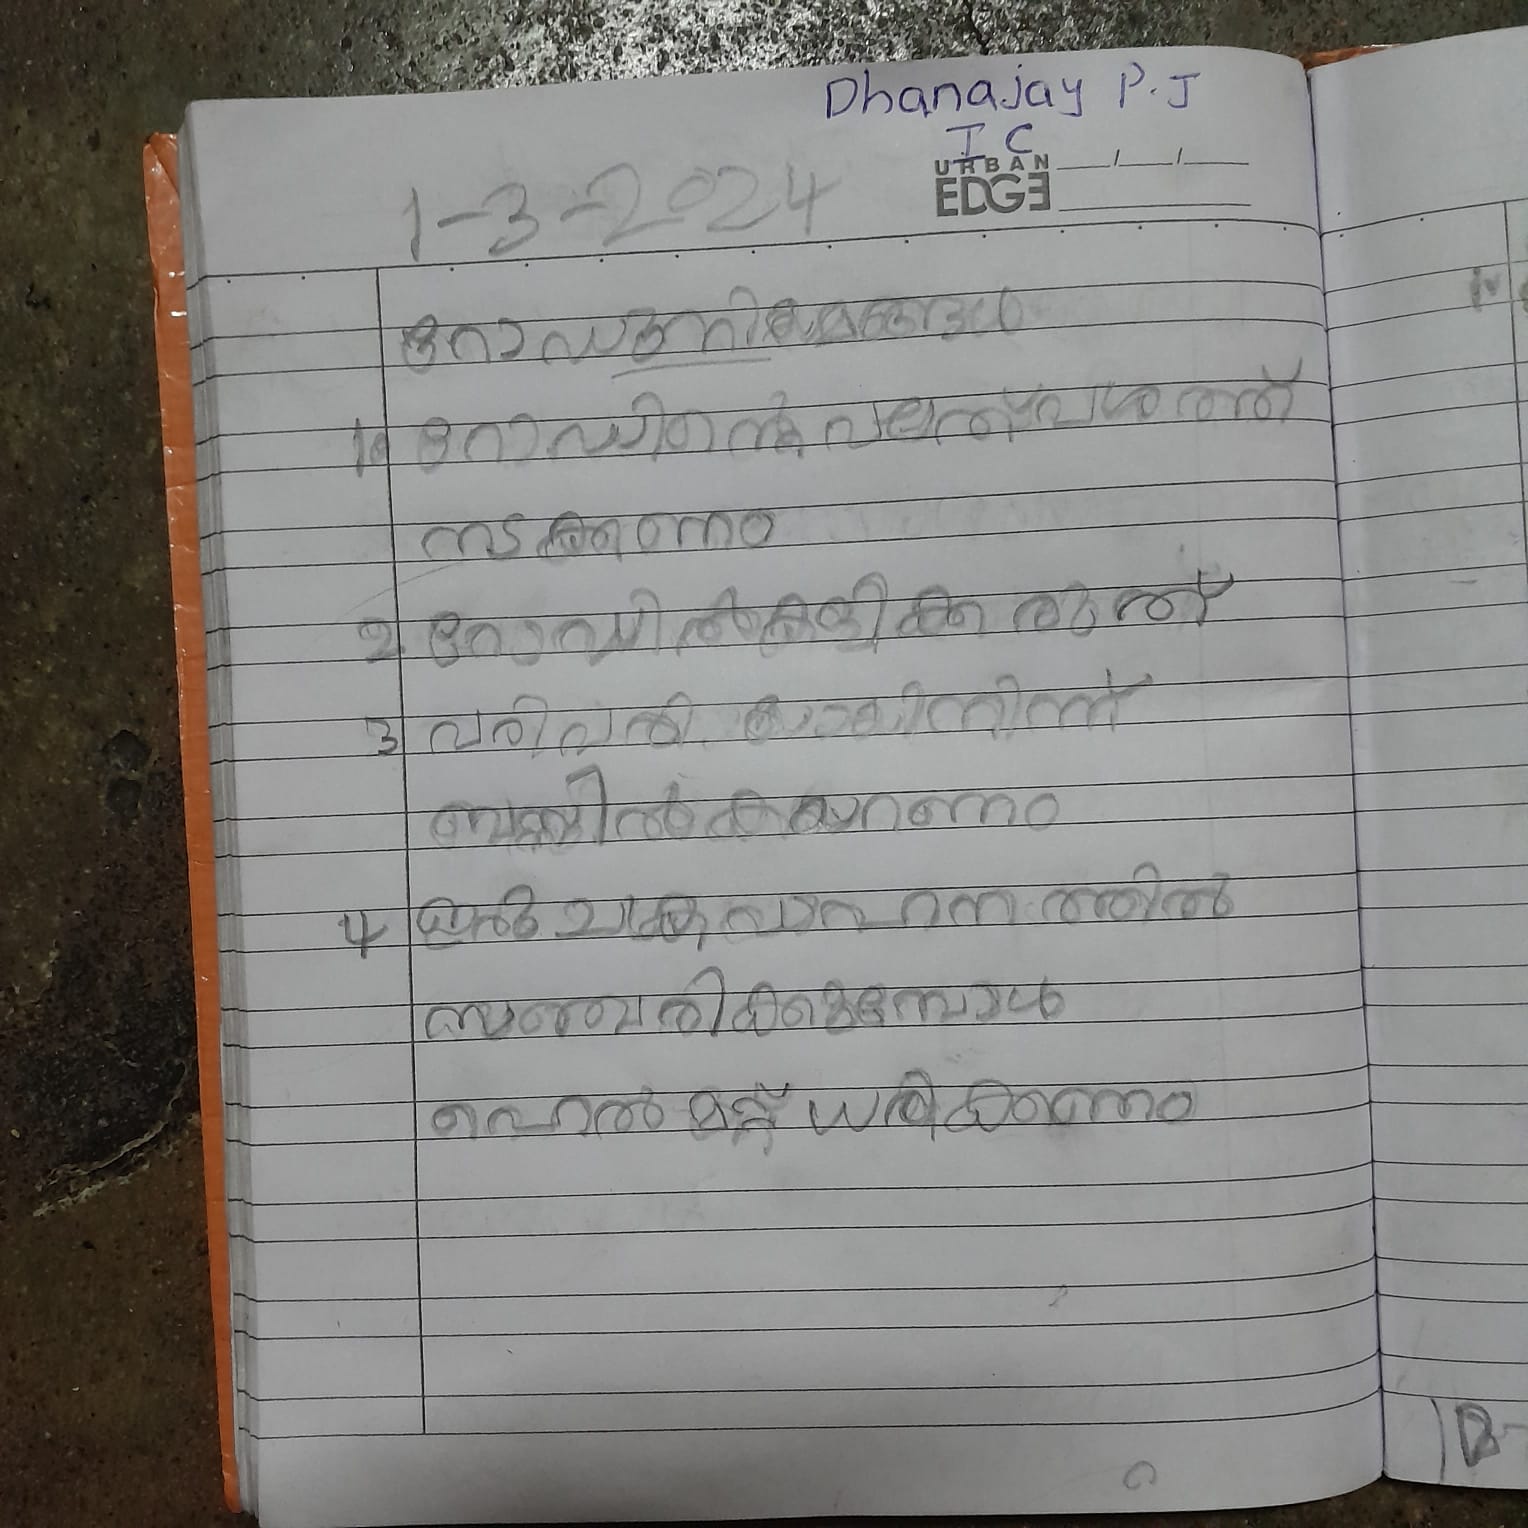 Dhanajay P.J
I C
URBAN
EDGE
1-3-2024
റോഡുനിയമങ്ങൾ
1 റോഡിന്റെ വലതുവശത്ത്
നടക്കണം
2 റോഡിൽ കളിക്കരുത്
3 വരിവരിയായിനിന്ന്
ബസ്സിൽ കയറണം
4 ഇരുചക്രവാഹനത്തിൽ
സഞ്ചരിക്കുമ്പോൾ
ഹെൽമറ്റ് ധരിക്കണം